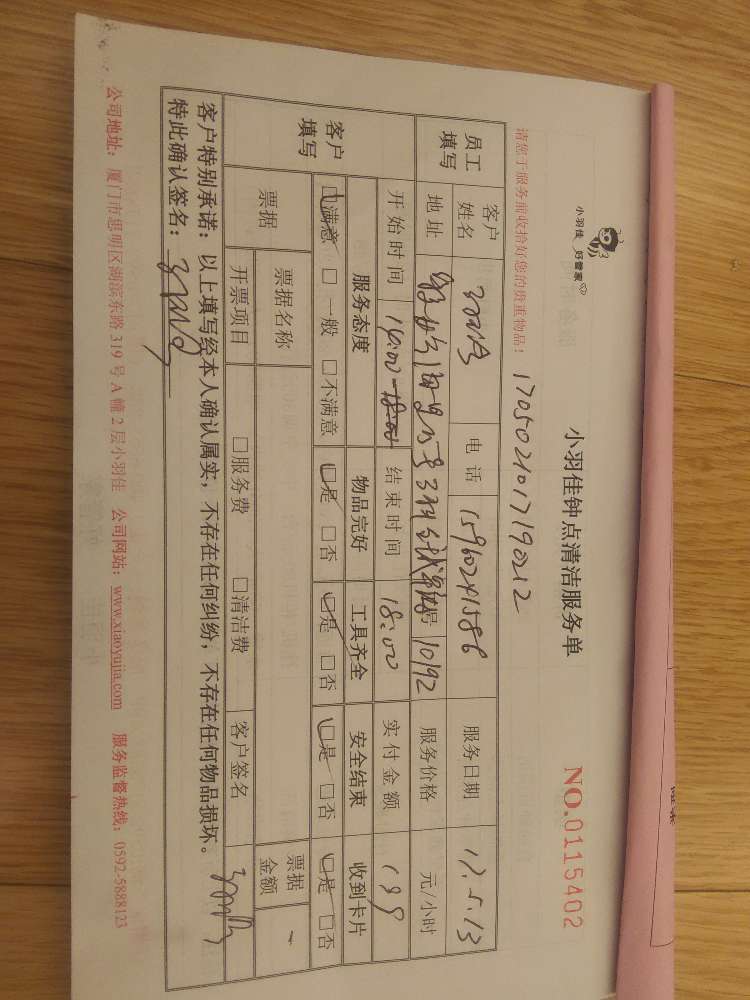 小羽佳 好管家
小羽佳钟点清洁服务单
NO.0115402
请您于服务前收拾好您的贵重物品:
1705021017190212
员工填写
客户姓名
电话 15960241586
服务日期 17.5.13
地址
10192
服务价格 元/小时
开始时间 14:00-18:00
结束时间 18:00
实付金额 139
客户填写
服务态度 物品完好 工具齐全 安全结束 收到卡片
□满意 □一般 □不满意 □是 □否 □是 □否 □是 □否 □是 □否
票据 票据名称 票据金额
开票项目 □服务费 □清洁费 客户签名
客户特别承诺:以上填写经本人确认属实,不存在任何纠纷,不存在任何物品损坏。
特此确认签名:
公司地址:厦门市思明区湖滨东路319号A幢2层小羽佳 公司网站:www.xiaoyujia.com 服务监督热线:0592-5888123